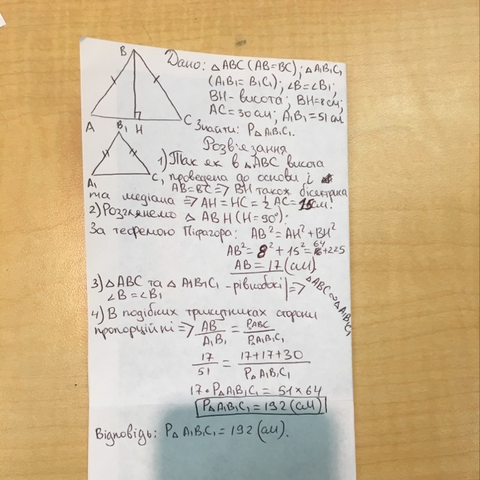 B
A H C
B₁
A₁ C₁
Дано: △ABC (AB=BC); △A₁B₁C₁
(A₁B₁=B₁C₁); ∠B=∠B₁;
BH - висота; BH=8 см;
AC=30 см; A₁B₁=51 см
Знайти: P△A₁B₁C₁.
Розв'язання
1) Так як в △ABC висота
проведена до основи і
AB=BC ⇒ BH також бісектриса
та медіана ⇒ AH=HC=½AC=15 см.
2) Розглянемо △ABH (H=90°):
За теоремою Піфагора: AB²=AH²+BH²
AB²=8²+15²=64+225
AB=17 (см)
3) △ABC та △A₁B₁C₁ - рівнобокі | ⇒ △ABC∾△A₁B₁C₁
∠B=∠B₁
4) В подібних трикутниках сторони
пропорційні ⇒ AB/A₁B₁ = PABC/P△A₁B₁C₁
17/51 = 17+17+30/P△A₁B₁C₁
17·P△A₁B₁C₁ = 51×64
P△A₁B₁C₁=192 (см)
Відповідь: P△A₁B₁C₁=192 (см).